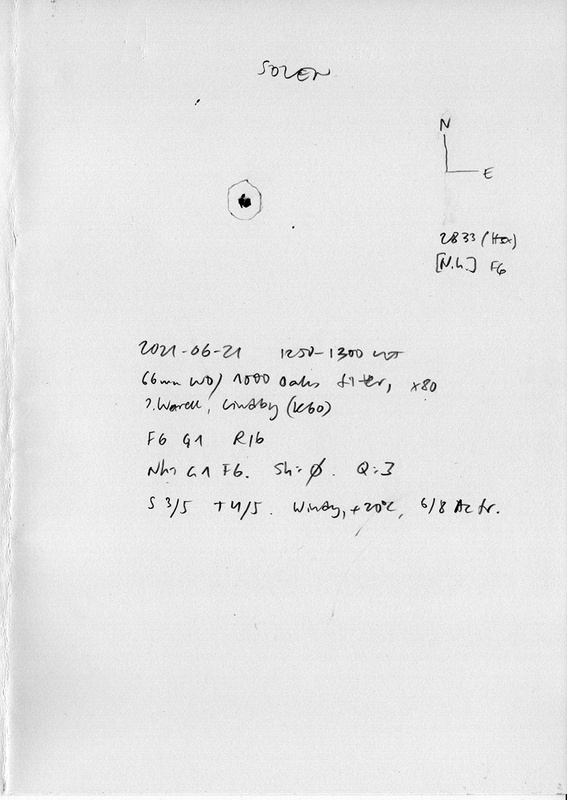 SOLEN
N
E
2833 (Hsx)
[N.h.] F6
2021-06-21 1250-1300 UT
66mm WO/ 1000 Oaks filter, x80
J. Warell, Lindby (K60)
F6 G1 R16
Nh: G1 F6. Sh: ∅. Q: 3
S 3/5 T 4/5. Windy, +20°C, 6/8 Ac fr.